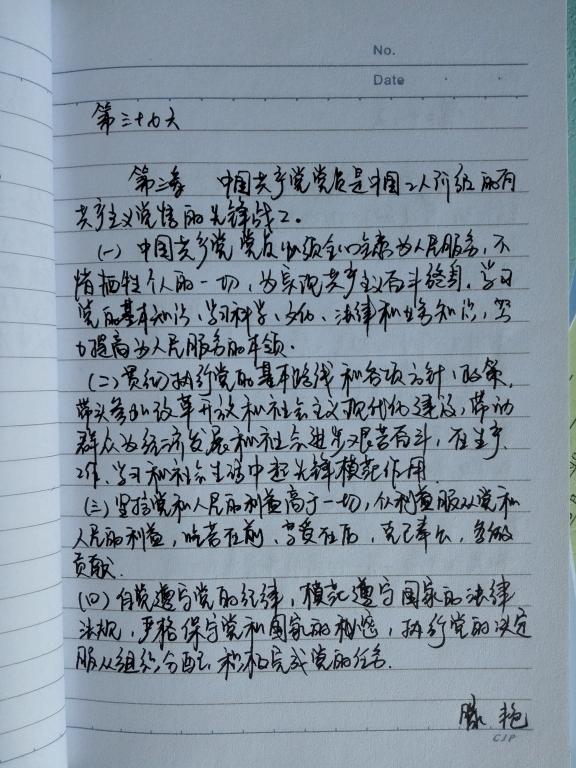 No.
Date
第三十九天
第二条 中国共产党党员是中国工人阶级的有
共产主义觉悟的先锋战士。
(一) 中国共产党党员必须全心全意为人民服务,不
惜牺牲个人的一切,为实现共产主义奋斗终身。学习
党的基本知识,学习科学、文化、法律和业务知识,努
力提高为人民服务的本领。
(二) 贯彻执行党的基本路线和各项方针、政策,
带头参加改革开放和社会主义现代化建设,带动
群众为经济发展和社会进步艰苦奋斗,在生产、
工作、学习和社会生活中起先锋模范作用
(三) 坚持党和人民的利益高于一切,个人利益服从党和
人民的利益,吃苦在前,享受在后,克己奉公,多做
贡献.
(四) 自觉遵守党的纪律,模范遵守国家的法律
法规,严格保守党和国家的秘密,执行党的决定
服从组织分配,积极完成党的任务.
滕艳
CJP